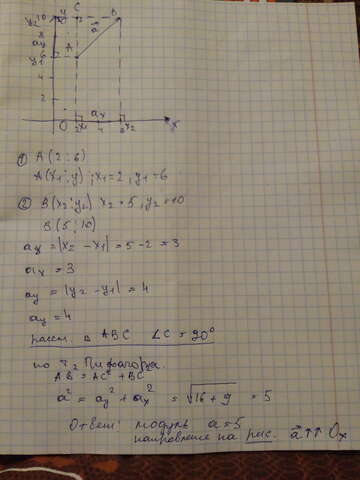 y₂ 10 y C B
8 a⃗
ay A
y₁ 6
4
2
ax
O 2 x₁ 4 5 x₂ x
① A (2 ; 6)
A(x₁ ; y) ; x₁ = 2 , y₁ = 6
② B(x₂ ; y₂) x₂ = 5 , y₂ = 10
B (5 ; 10)
ax = |x₂ - x₁| = 5 - 2 = 3
ax = 3
ay = |y₂ - y₁| = 4
ay = 4
рассм. Δ ABC ∠C = 90°
по т. Пифагора.
AB² = AC² + BC²
a² = ay² + ax² = √16 + 9 = 5
Ответ: модуль a = 5
направление на рис. a⃗ ↑↑ Ox